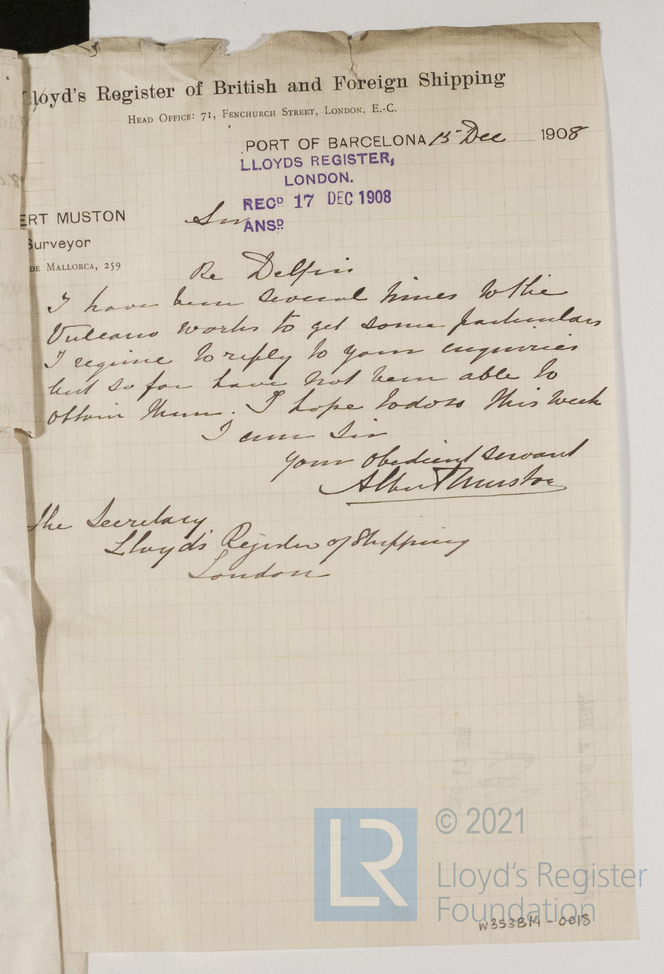 Lloyd's Register of British and Foreign Shipping
HEAD OFFICE: 71, FENCHURCH STREET, LONDON. E.-C.
PORT OF BARCELONA 15 Dec 1908
LLOYDS REGISTER,
LONDON.
RECD 17 DEC 1908
ANSD
ERT MUSTON
Surveyor
DE MALLORCA, 259
Sir
Re Delfin
I have been several times to the
Vulcano works to get some particulars
I require to reply to your enquiries
but so far have not been able to
obtain them. I hope to do so this week
I am Sir
your obedient servant
Albert Muston
The Secretary
Lloyd's Register of Shipping
London
LR
© 2021
Lloyd's Register
Foundation
W353B14-0018